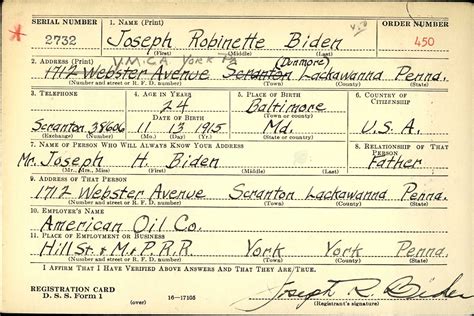 SERIAL NUMBER 1. NAME (Print) ORDER NUMBER
2732 Joseph Robinette Biden 450
(First) (Middle) (Last)
2. ADDRESS (Print) Y.M.C.A. YORK PA (Dunmore)
1712 Webster Avenue Scranton Lackawanna Penna.
(Number and street or R. F. D. number) (Town) (County) (State)
3. TELEPHONE 4. AGE IN YEARS 5. PLACE OF BIRTH 6. COUNTRY OF CITIZENSHIP
24 Baltimore
DATE OF BIRTH (Town or county)
Scranton 38606 11 13 1915 Md. U.S.A.
(Exchange) (Number) (Mo.) (Day) (Yr.) (State or country)
7. NAME OF PERSON WHO WILL ALWAYS KNOW YOUR ADDRESS 8. RELATIONSHIP OF THAT PERSON
Mr. Joseph H. Biden Father
(Mr., Mrs., Miss) (First) (Middle) (Last)
9. ADDRESS OF THAT PERSON
1712 Webster Avenue Scranton Lackawanna Penna.
(Number and street or R. F. D. number) (Town) (County) (State)
10. EMPLOYER'S NAME
American Oil Co.
11. PLACE OF EMPLOYMENT OR BUSINESS
Hill St. & M. & P. R. R. York York Penna.
(Number and street or R. F. D. number) (Town) (County) (State)
I AFFIRM THAT I HAVE VERIFIED ABOVE ANSWERS AND THAT THEY ARE TRUE.
REGISTRATION CARD
D. S. S. Form 1 (over) 16—17105 Joseph R. Biden
(Registrant's signature)